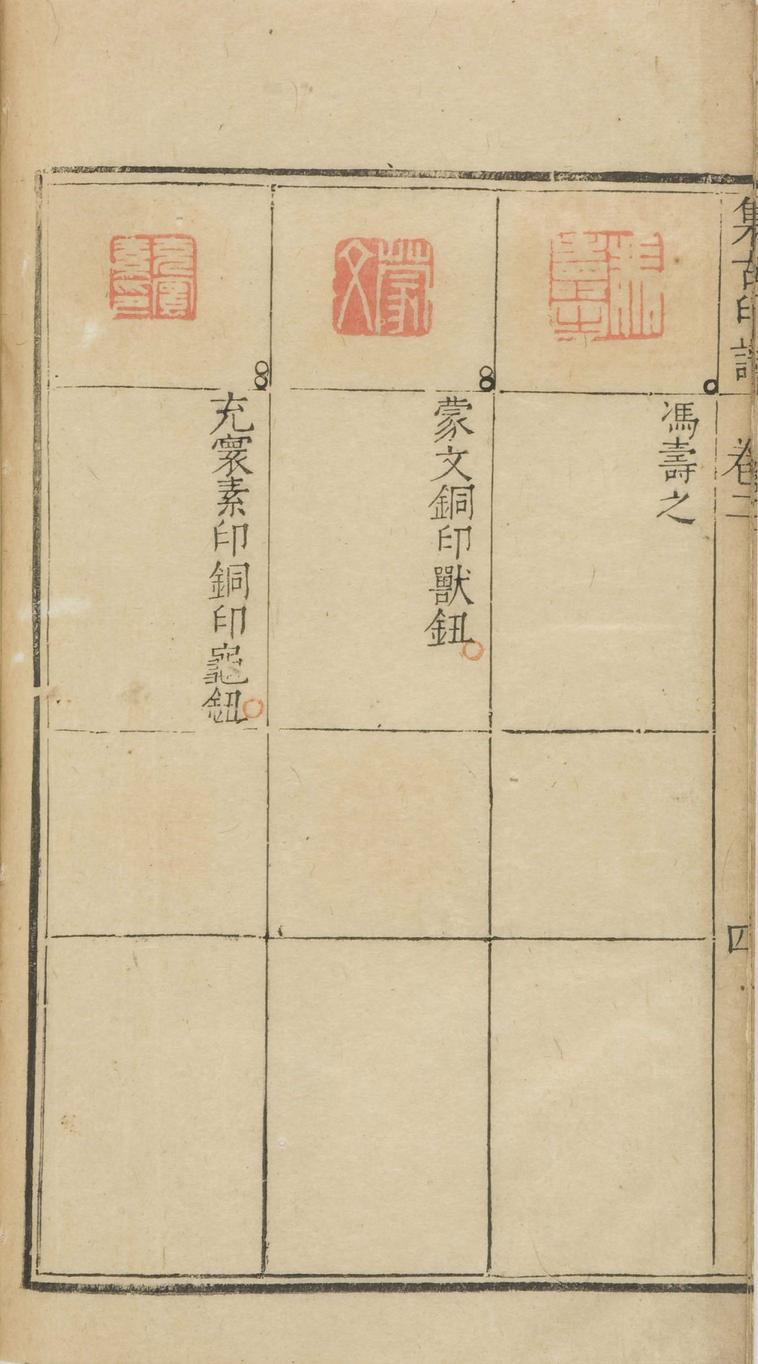 集古印譜 卷二 四
馮壽之
蒙文銅印獸鈕
充寰素印銅印龜鈕